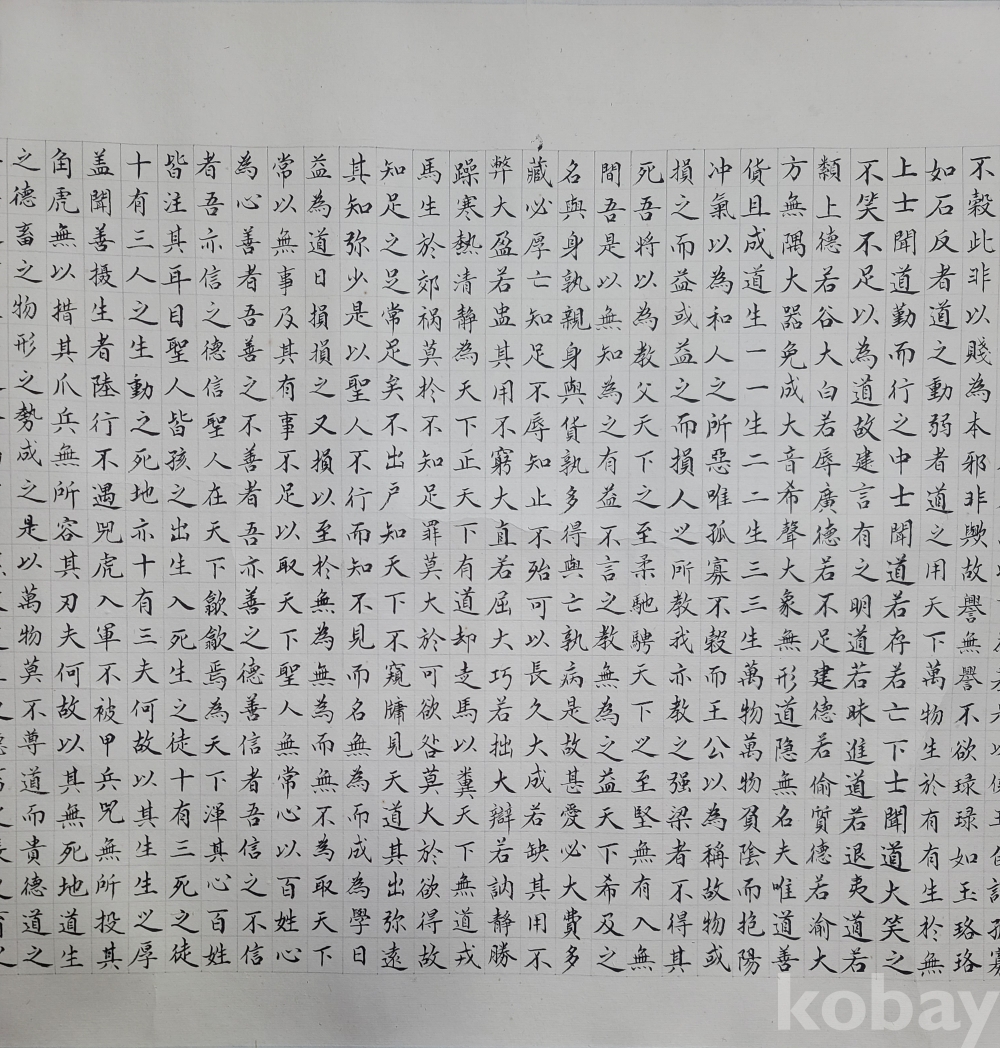 不穀此非以賤為本邪非歟故譽無譽不欲琭琭如玉珞珞
如石反者道之動弱者道之用天下萬物生於有有生於無
上士聞道勤而行之中士聞道若存若亡下士聞道大笑之
不笑不足以為道故建言有之明道若昧進道若退夷道若
纇上德若谷大白若辱廣德若不足建德若偷質德若渝大
方無隅大器免成大音希聲大象無形道隐無名夫唯道善
貨且成道生一一生二二生三三生萬物萬物負陰而抱陽
冲氣以為和人之所惡唯孤寡不穀而王公以為稱故物或
損之而益或益之而損人之所教我亦教之强梁者不得其
死吾將以為教父天下之至柔馳騁天下之至堅無有入無
間吾是以無知為之有益不言之教無為之益天下希及之
名與身孰親身與貨孰多得與亡孰病是故甚愛必大費多
藏必厚亡知足不辱知止不殆可以長久大成若缺其用不
弊大盈若盅其用不窮大直若屈大巧若拙大辯若訥静勝
躁寒熱清静為天下正天下有道却走馬以糞天下無道戎
馬生於郊祸莫於不知足罪莫大於可欲咎莫大於欲得故
知足之足常足矣不出户知天下不窺牖見天道其出弥遠
其知弥少是以聖人不行而知不見而名無為而成為學日
益為道日損損之又損以至於無為無為而無不為取天下
常以無事及其有事不足以取天下聖人無常心以百姓心
為心善者吾善之不善者吾亦善之德善信者吾信之不信
者吾亦信之德信聖人在天下歙歙焉為天下渾其心百姓
皆注其耳目聖人皆孩之出生入死生之徒十有三死之徒
十有三人之生動之死地亦十有三夫何故以其生生之厚
盖聞善摄生者陸行不遇兕虎入軍不被甲兵兕無所投其
角虎無以措其爪兵無所容其刃夫何故以其無死地道生
之德畜之物形之勢成之是以萬物莫不尊道而貴德道之
kobay